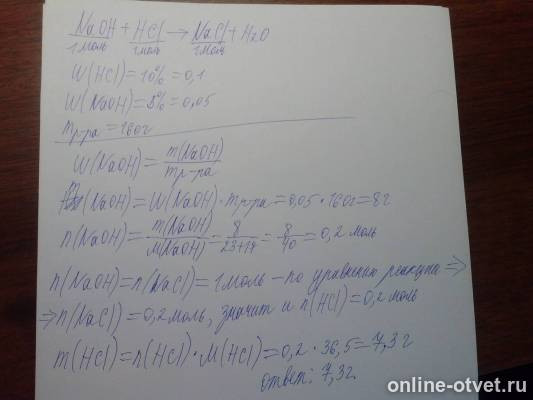 NaOH + HCl → NaCl + H2O
1моль 1моль 1моль
W(HCl)=10%=0,1
W(NaOH)=5%=0,05
mр-ра=160г
W(NaOH)=m(NaOH)/mр-ра
m(NaOH)=W(NaOH)·mр-ра=0,05·160г=8г
n(NaOH)=m(NaOH)/M(NaOH)=8/23+17=8/40=0,2 моль
n(NaOH)=n(NaCl)=1моль – по уравнению реакции ⇒
⇒ n(NaCl)=0,2 моль, значит и n(HCl)=0,2 моль
m(HCl)=n(HCl)·M(HCl)=0,2·36,5=7,3 г
ответ: 7,3г.
online-otvet.ru